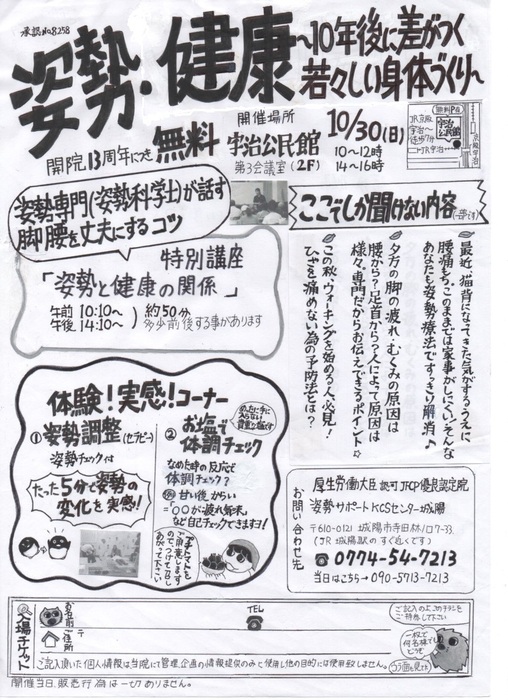 承認No.8258
姿勢・健康
～10年後に差がつく
若々しい身体づくり～
開院13周年につき 無料
開催場所
宇治公民館
第3会議室(2F)
10/30(日)
10～12時
14～16時
無料P有
JR京阪
宇治～
徒歩
宇治
公民館
姿勢専門(姿勢科学士)が話す
脚腰を丈夫にするコツ
特別講座
「姿勢と健康の関係」
午前 10:10～
午後 14:10～
約50分
多少前後する事があります
ここでしか聞けない内容(一部です)
最近、猫背になってきた気がするうえに
腰痛も。このままでは家事がしにくい。そんな
あなたも姿勢療法ですっきり解消♪
夕方の脚の疲れ・むくみの原因は
腰から?足首から?人によって原因は
様々。専門だからお伝えできるポイント☆
この秋、ウォーキングを始める人、必見!
ひざを痛めない為の予防法とは?
体験!実感!コーナー
①姿勢調整(セラピー)
姿勢チェックは
たった5分で姿勢の
変化を実感!
②お塩で
体調チェック
なめた時の反応で
体調チェック?
例 甘い後からい
=「○○が疲れ気味」
など自己チェックできますヨ!
厚生労働大臣認可 JFCP優良認定院
姿勢サポートKCSセンター城陽
お問い合わせ先
〒610-0121 城陽市寺田林ノ口7-33
(JR 城陽駅のすぐ近くです)
☎ 0774-54-7213
当日はこちら→090-5713-7213
入場チケット
お名前
TEL
ご住所
〒
ご記入の上このチラシを
ご持参して下さい
一枚で
何名様でも
どうぞ
ウラ面も見てネ
ご記入頂いた個人情報は当院にて管理、企画の情報提供のみに使用し他の目的には使用致しません。
開催当日、販売行為は一切ありません。